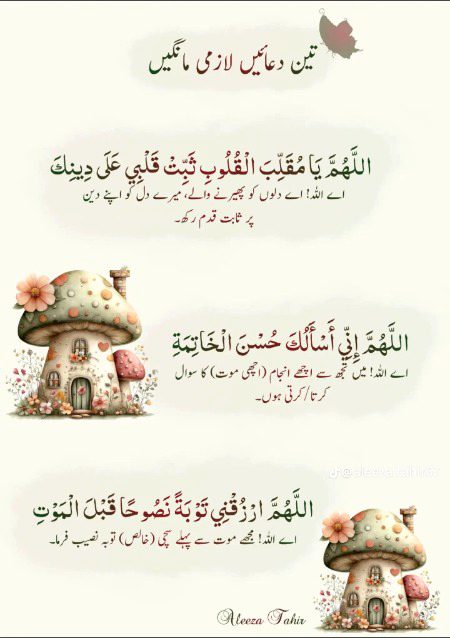 تین دعائیں لازمی مانگیں
اللَّهُمَّ يَا مُقَلِّبَ الْقُلُوبِ ثَبِّتْ قَلْبِي عَلَى دِينِكَ
اے اللہ! اے دلوں کو پھیرنے والے، میرے دل کو اپنے دین
پر ثابت قدم رکھ۔
اللَّهُمَّ إِنِّي أَسْأَلُكَ حُسْنَ الْخَاتِمَةِ
اے اللہ! میں تجھ سے اچھے انجام (اچھی موت) کا سوال
کرتا/کرتی ہوں۔
اللَّهُمَّ ارْزُقْنِي تَوْبَةً نَصُوحًا قَبْلَ الْمَوْتِ
اے اللہ! مجھے موت سے پہلے سچی (خالص) توبہ نصیب فرما۔
Aleeza Tahir